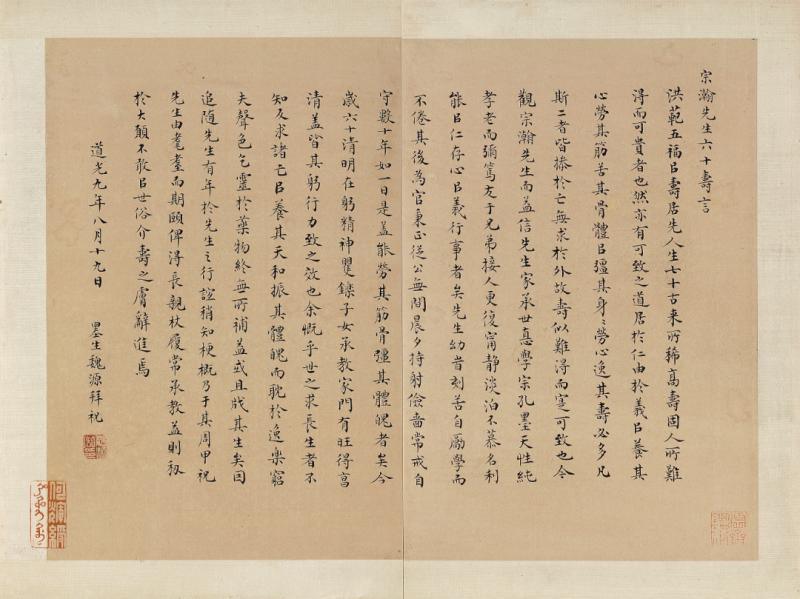 宗瀚先生六十壽言
洪範五福㠯壽居先人生七十古来所稀高壽固人所難
淂而可貴者也然亦有可致之道居於仁由於義㠯養其
心勞其筋苦其骨體㠯彊其身身勞心逸其壽必多凡
斯二者皆操於己無求於外故壽似難淂而寔可致也今
觀宗瀚先生而益信先生家承世惪學宗孔墨天性純
孝老而彌篤友于兄弟接人更復甯静淡泊不慕名利
能㠯仁存心㠯義行事者矣先生幼昔刻苦自勵學而
不倦其後為官秉正從公無間晨夕持射儉嗇常戒自
守數十年如一日是盖能勞其筋骨彊其體魄者矣今
歲六十清明在躬精神矍鑠子女承教家門有旺得亯
清盖皆其躬行力致之效也余慨乎世之求長生者不
知反求諸己㠯養其天和振其體魄而耽於逸樂窮
夫聲色乞靈於藥物終無所補益或且戕其生矣因
追随先生有年於先生之行誼稍知梗概乃于其周甲祝
先生由耄耋而期頤俾淂長親杖履常承教益則初
於大顛不敢㠯世俗介壽之膚辭進焉
道光九年八月十九日
墨生魏源拜祝